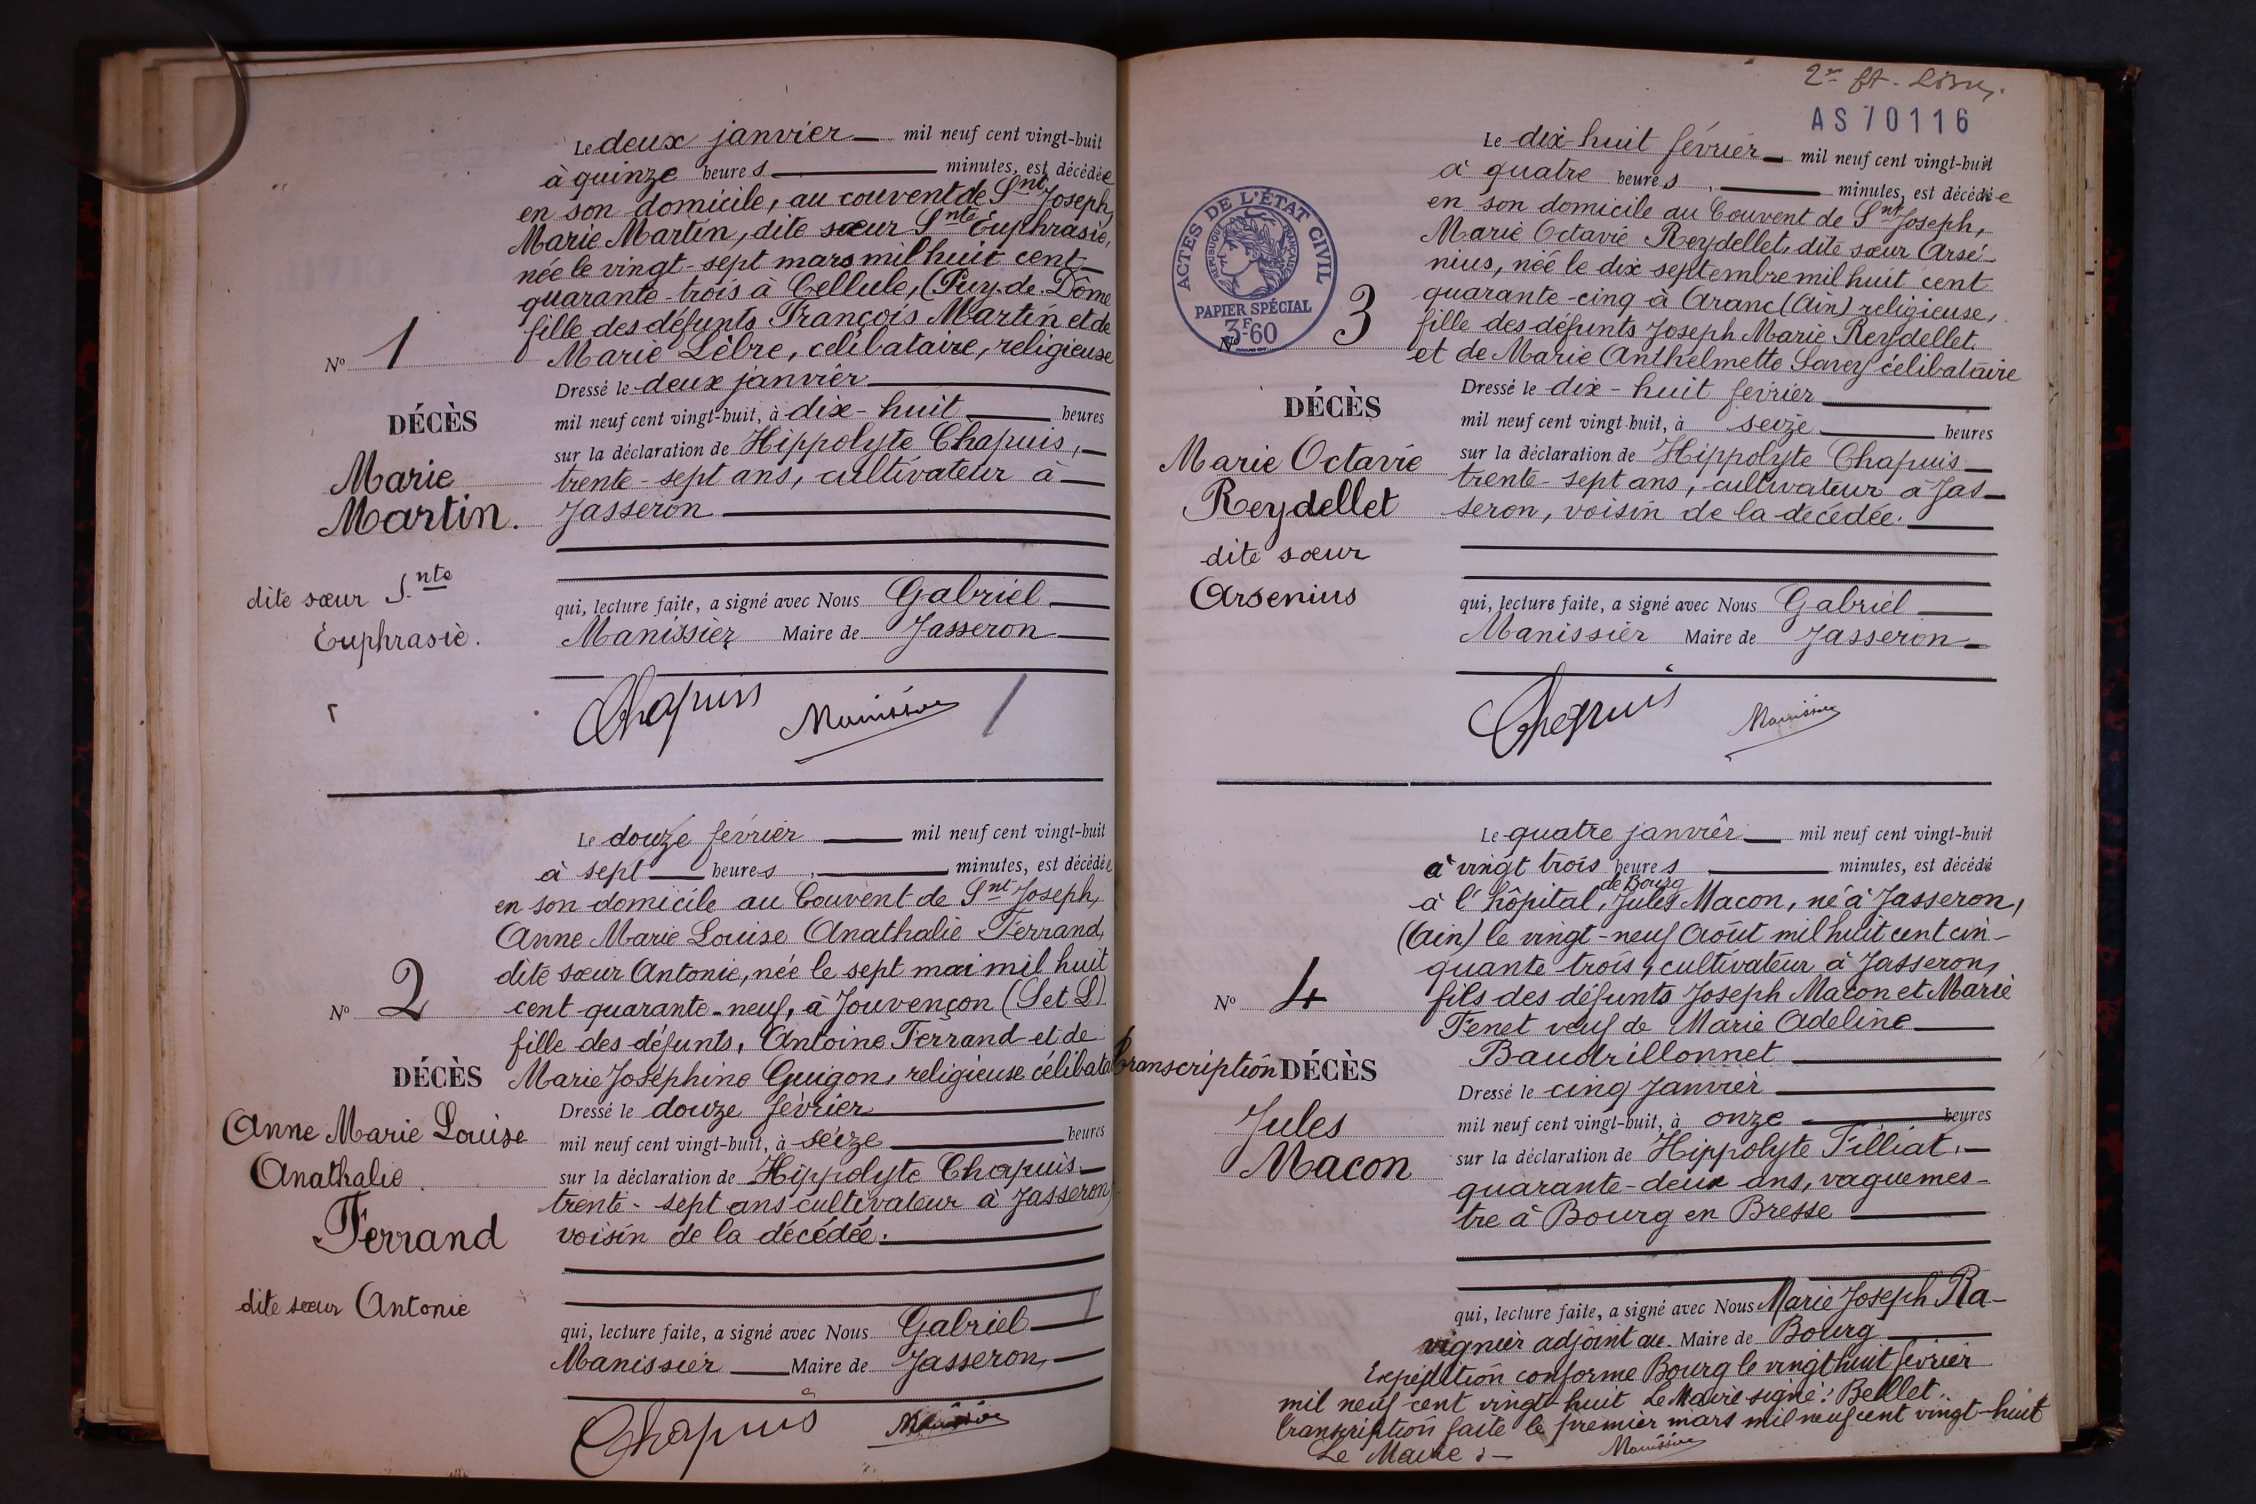 Le deux janvier mil neuf cent vingt-huit
à quinze heures minutes, est décédée
en son domicile, au couvent de Snt Joseph,
Marie Martin, dite sœur Snte Euphrasie,
née le vingt-sept mars mil huit cent
quarante-trois à Cellule, (Puy-de-Dôme
fille des défunts François Martin et de
Marie Lèbre, célibataire, religieuse
No 1
DÉCÈS
Marie
Martin.
dite sœur Snte
Euphrasie.
Dressé le deux janvier
mil neuf cent vingt-huit, à dix-huit heures
sur la déclaration de Hippolyte Chapuis,
trente-sept ans, cultivateur à
Jasseron
qui, lecture faite, a signé avec Nous Gabriel
Manissier Maire de Jasseron
Chapuis Manissier
Le douze février mil neuf cent vingt-huit
à sept heures, minutes, est décédée
en son domicile au Couvent de Snt Joseph,
Anne Marie Louise Anathalie Ferrand,
dite sœur Antonie, née le sept mai mil huit
cent quarante-neuf, à Jouvençon (S et L)
fille des défunts, Antoine Ferrand et de
Marie Joséphine Guigon, religieuse célibata
No 2
DÉCÈS
Anne Marie Louise
Anathalie
Ferrand
dite sœur Antonie
Dressé le douze février
mil neuf cent vingt-huit, à seize heures
sur la déclaration de Hippolyte Chapuis
trente-sept ans cultivateur à Jasseron,
voisin de la décédée.
qui, lecture faite, a signé avec Nous Gabriel
Manissier Maire de Jasseron,
Chapuis Manissier
AS 70116
ACTES DE L'ÉTAT CIVIL
RÉPUBLIQUE FRANÇAISE
PAPIER SPÉCIAL
3F60
Le dix-huit février mil neuf cent vingt-huit
à quatre heures, minutes, est décédée
en son domicile au Couvent de Snt Joseph,
Marie Octavie Reydellet, dite sœur Arsé-
nius, née le dix septembre mil huit cent
quarante-cinq à Aranc (Ain) religieuse,
fille des défunts Joseph Marie Reydellet
et de Marie Anthelmette Savey célibataire
No 3
DÉCÈS
Marie Octavie
Reydellet
dite sœur
Arsenius
Dressé le dix-huit février
mil neuf cent vingt-huit, à seize heures
sur la déclaration de Hippolyte Chapuis
trente-sept ans, cultivateur à Jas-
seron, voisin de la décédée.
qui, lecture faite, a signé avec Nous Gabriel
Manissier Maire de Jasseron
Chapuis Manissier
Le quatre janvier mil neuf cent vingt-huit
à vingt trois heures minutes, est décédé
de Bourg
à l'hôpital, Jules Macon, né à Jasseron,
(Ain) le vingt-neuf Août mil huit cent cin-
quante trois, cultivateur à Jasseron,
fils des défunts Joseph Macon et Marie
Fenet veuf de Marie Adeline
Baudrillonnet
No 4
Transcription DÉCÈS
Jules
Macon
Dressé le cinq Janvier
mil neuf cent vingt-huit, à onze heures
sur la déclaration de Hippolyte Filliat,
quarante-deux ans, vaguemes-
tre à Bourg en Bresse
qui, lecture faite, a signé avec Nous Marie Joseph Ra-
vignier adjoint au Maire de Bourg
Expédition conforme Bourg le vingt huit février
mil neuf cent vingt-huit Le Maire signé: Bellet.
Transcription faite le premier mars mil neuf cent vingt-huit
Le Maire :- Manissier